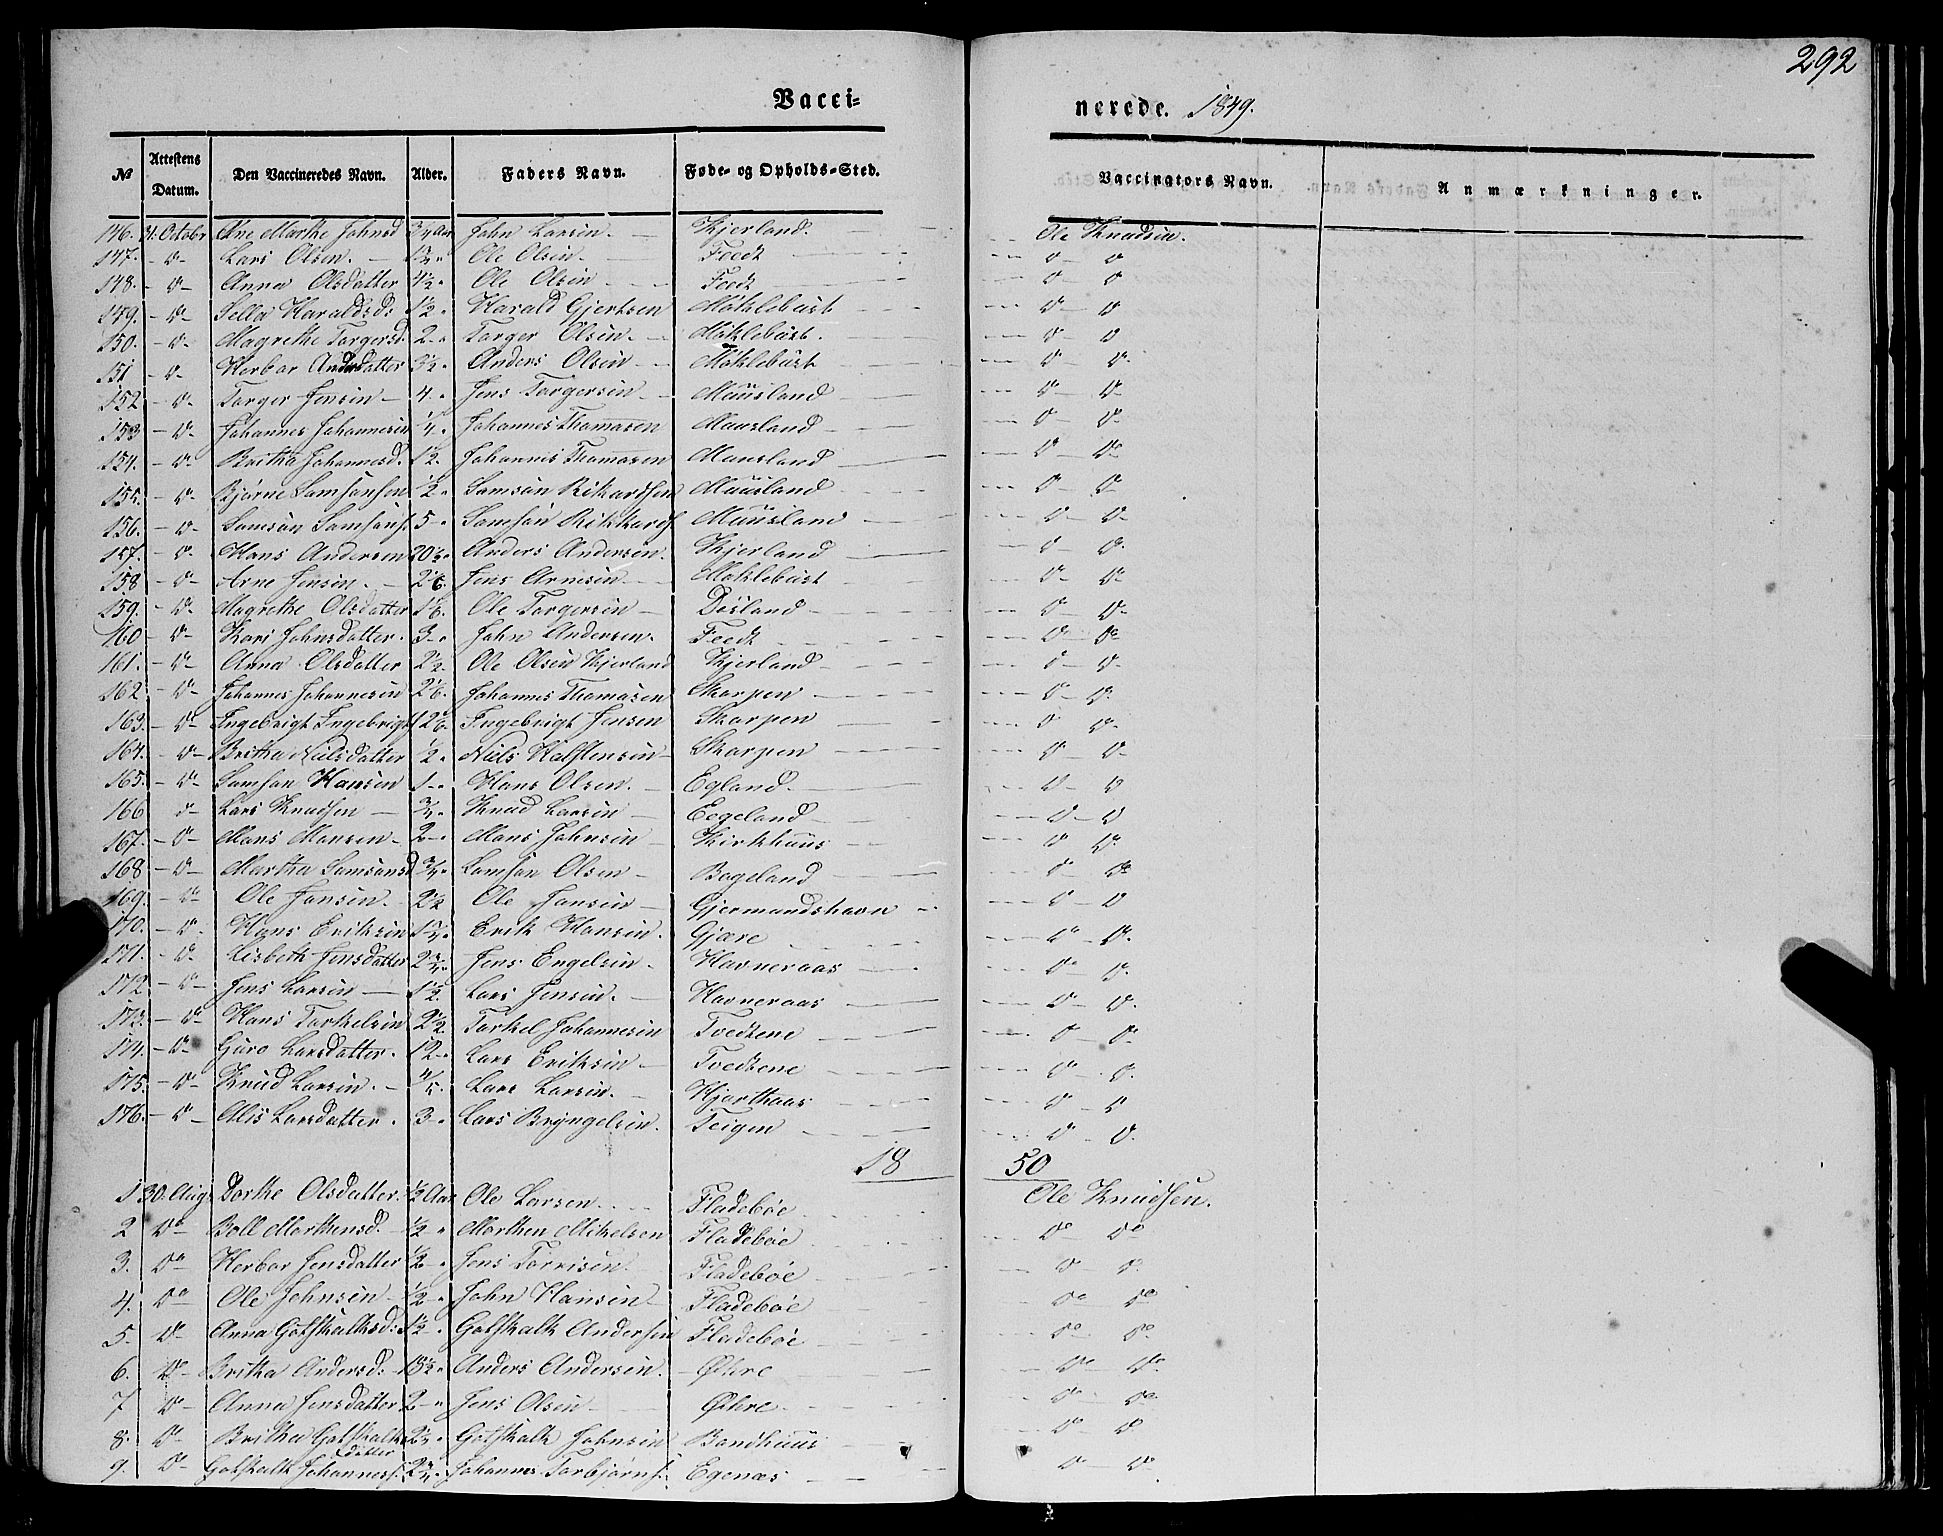 292
Vacci= nerede. 1849.
№ Attestens Datum. Den Vaccineredes Navn. Alder. Faders Navn. Føde- og Opholds-Sted. Vaccinators Navn. Anmærkninger.
146. 31. Octobr Ane Marthe Johnsd 3/4 Aar John Larsen. Kjerland. Ole Knudsen.
147. - d- Lars Olsen. Ole Olsen. Feedt d d
148. - d- Anna Olsdatter 4½. Ole Olsen Feedt d d
149. - d- Sella Haraldsd: 1½. Harald Gjertsen Møklebust d d
150. - d- Magrethe Torgersd. 2-. Torger Olsen. Møklebust. d d
151 - d- Herbor Andersdatter 3½. Anders Olsen Møklebust d d
152 - d- Torger Jensen 4-. Jens Torgersen Muusland d d
153 - d- Johannes Johannesen ¼. Johannes Thomasen Muusland d d
154. - d- Britha Johannesd. 1½. Johannes Thomasen Muusland d do
155. - d- Bjørne Samsonsen ½. Samson Rikardsen Muusland d d
156. - d- Samson Samsons. 5-. Samson Rikkards. Muusland d d
157. - d- Hans Andersen 20½. Anders Andersen. Kjerland d d
158 - d- Arne Jensen. 2 1/6. Jens Arnesen Møklebust d do
159. - d- Magrethe Olsdatter 1 1/6. Ole Torgersen Døsland d d
160 - d- Kari Johnsdatter. 3-. John Andersen. Feedt d do
161. - d- Anna Olsdatter 2½. Ole Olsen Kjerland Kjerland d d
162 - d- Johannes Johannesen 2 1/6. Johannes Thomasen Skarpen d d
163. - d- Ingebrigt Ingebrigts Ingebrigt Jensen Skarpen d d
164. - d- Britha Nielsdatter ½. Niels Halstensen Skarpen d d
165. - d- Samson Hansen 1-. Hans Olsen. Egland. d d
166 d- Lars Knudsen ¾. Knud Larsen Eegeland d d
167. - d- Mons Monsen 2-. Mons Johnsen Kirkhuus d do
168 - d- Martha Samsonsd ¾. Samson Olsen Bogeland d do
169. - do Ole Jansen. 2½ Ole Jansen Gjermundshavn d d
170. - d- Hans Eriksen Erik Hansen. Gjære d d
171. - d- Lisbeth Jensdatter 2¾. Jens Engelsen Havneraas d d
172. - d- Jens Larsen 1½. Lars Jensen. Havneraas d d
173. - do Hans Torkelsen 2½. Torkel Johannesen Tvedtene d d
174. - do Guro Larsdatter. 12-. Lars Eriksen Tvedtene d d
175. - d- Knud Larsen. 4/5. Lars Larsen. Hjorthaas d d
176. - d- Alis Larsdatter. 3-. Lars Bryngelsen. Teigen d d
18 50
1 30. Aug: Dorthe Olsdatter ½ Aar Ole Larsen Fladebøe Ole Knudsen.
2 do Boll Morthensd. ½. Morthen Mikelsen Fladebøe do do
3. do Herbor Jensdatter ½. Jens Torrisen. Fladebøe d d
4. do Ole Johnsen ½. John Hansen Fladebøe do do
5. d- Anna Gotskalksd: 1½. Gotskalk Andersen Fladebøe do do
6. do Britha Andersd: 15½. Anders Andersen. Øthre do do
7 do Anna Jensdatter 2-. Jens Olsen Øthre do do
8. do Britha Gotskalks datter Gotskalk Johnsen Bondhuus d d
9. do Gotskalk Johanness. 2¾. Johannes Torbjørns. Egenæs d d